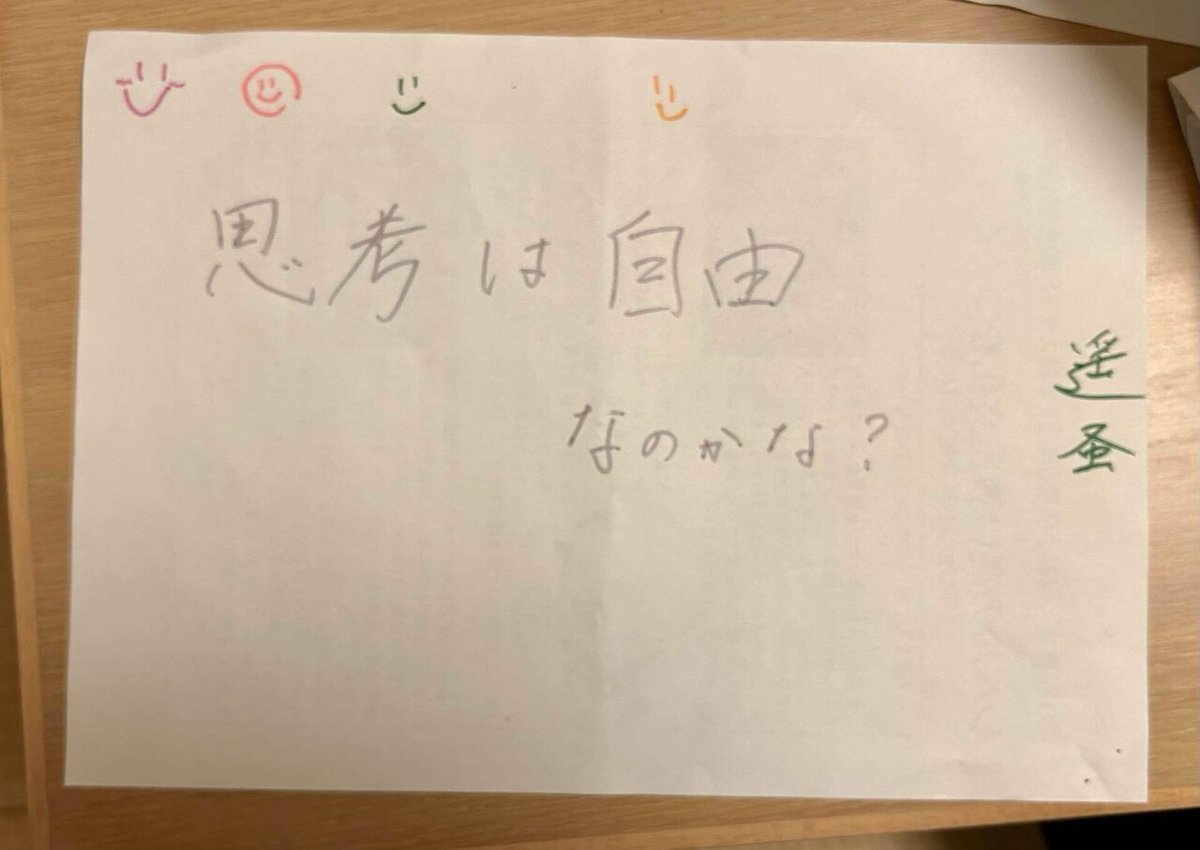 思考は自由
なのかな?
遥
蚤